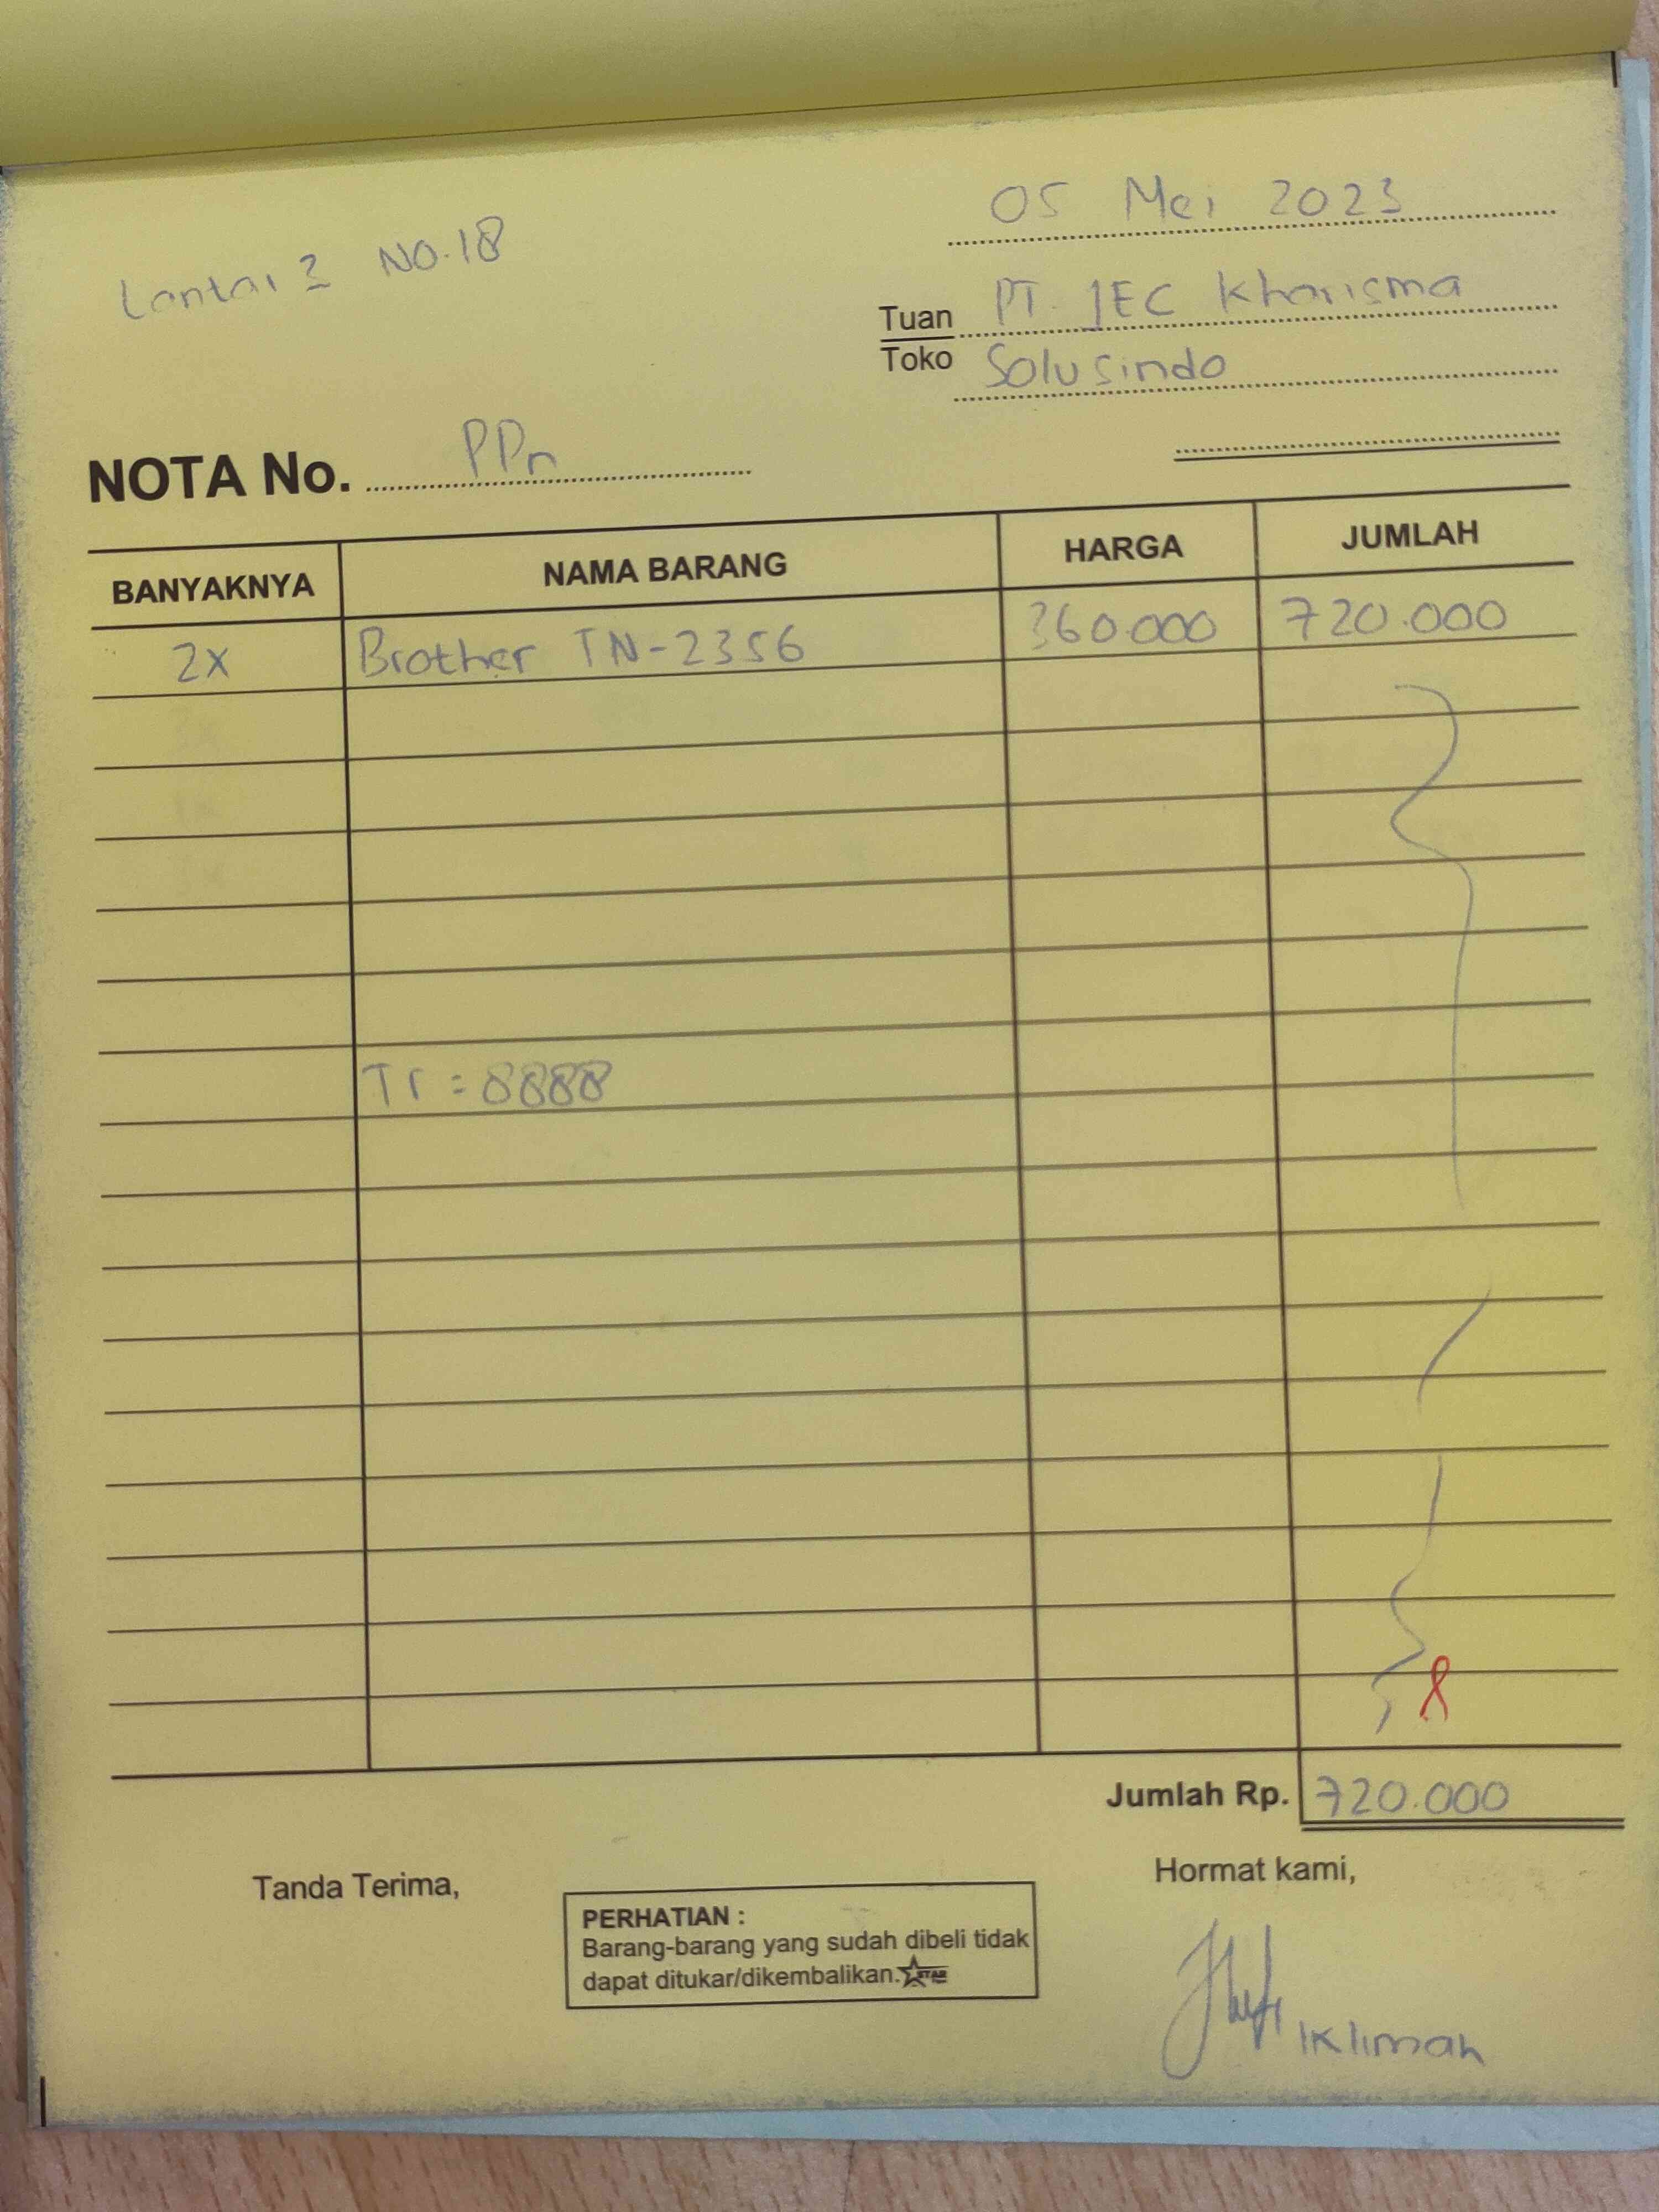 05 Mei 2023
Lantai 3 NO.18
Tuan PT. JEC Kharisma
Toko Solusindo
NOTA No. PPn
BANYAKNYA NAMA BARANG HARGA JUMLAH
2x Brother TN-2356 360.000 720.000
Tr = 8888
Jumlah Rp. 720.000
Tanda Terima,
Hormat kami,
PERHATIAN :
Barang-barang yang sudah dibeli tidak
dapat ditukar/dikembalikan. STAR
Iklimah